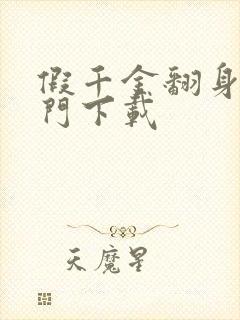 假千金翻身
門下載
天魔星